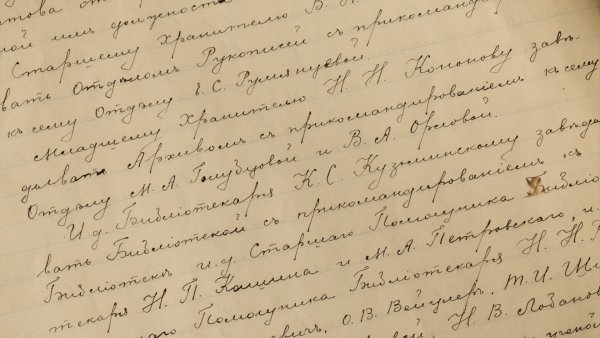 ной имъ должности
Старшему Хранителю В.
вать Отдѣломъ Рукописей съ прикоманди
къ сему Отдѣлу Е. С. Румянцевой.
Младшему Хранителю Н. Н. Кононову завѣ-
дывать Архивомъ съ прикомандированіемъ къ сему
Отдѣлу М. А. Голубцовой и В. А. Орловой.
И. д. Библіотекаря К. С. Кузьминскому завѣды
вать Библіотекой съ прикомандированіемъ къ
Библіотекѣ и. д. Старшаго Помощника Библіо
текаря Н. П. Кашина и М. А. Петровскаго, и.
аго Помощника Библіотекаря Н. Н.
евичъ, О. В. Вейцлеръ, Т. И.
Н. В. Лобанов